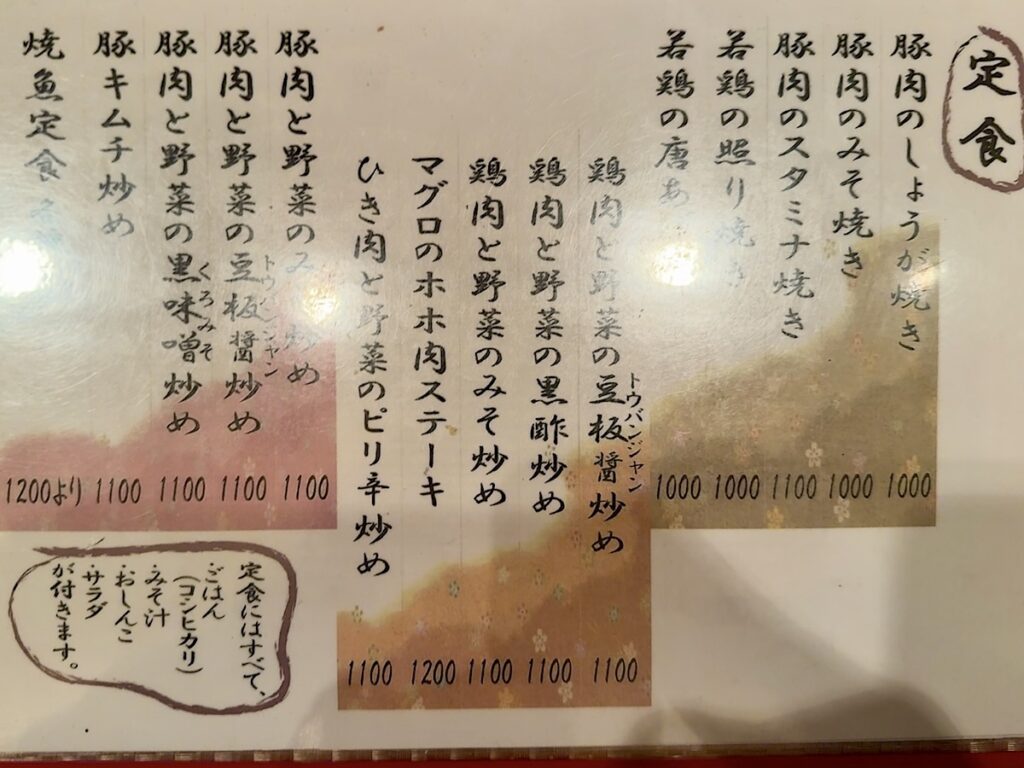 定食
豚肉のしょうが焼き
1000
豚肉のみそ焼き
1000
豚肉のスタミナ焼き
1100
若鶏の照り焼き
1000
若鶏の唐あ
1000
鶏肉と野菜の豆板醤炒め
トウバンジャン
1100
鶏肉と野菜の黒酢炒め
1100
鶏肉と野菜のみそ炒め
1100
マグロのホホ肉ステーキ
1200
ひき肉と野菜のピリ辛炒め
1100
豚肉と野菜のみそ炒め
1100
豚肉と野菜の豆板醤炒め
トウバンジャン
1100
豚肉と野菜の黒味噌炒め
くろみそ
1100
豚キムチ炒め
1100
焼魚定食
1200より
定食にはすべて、
ごはん
(コシヒカリ)
・みそ汁
・おしんこ
・サラダ
が付きます。